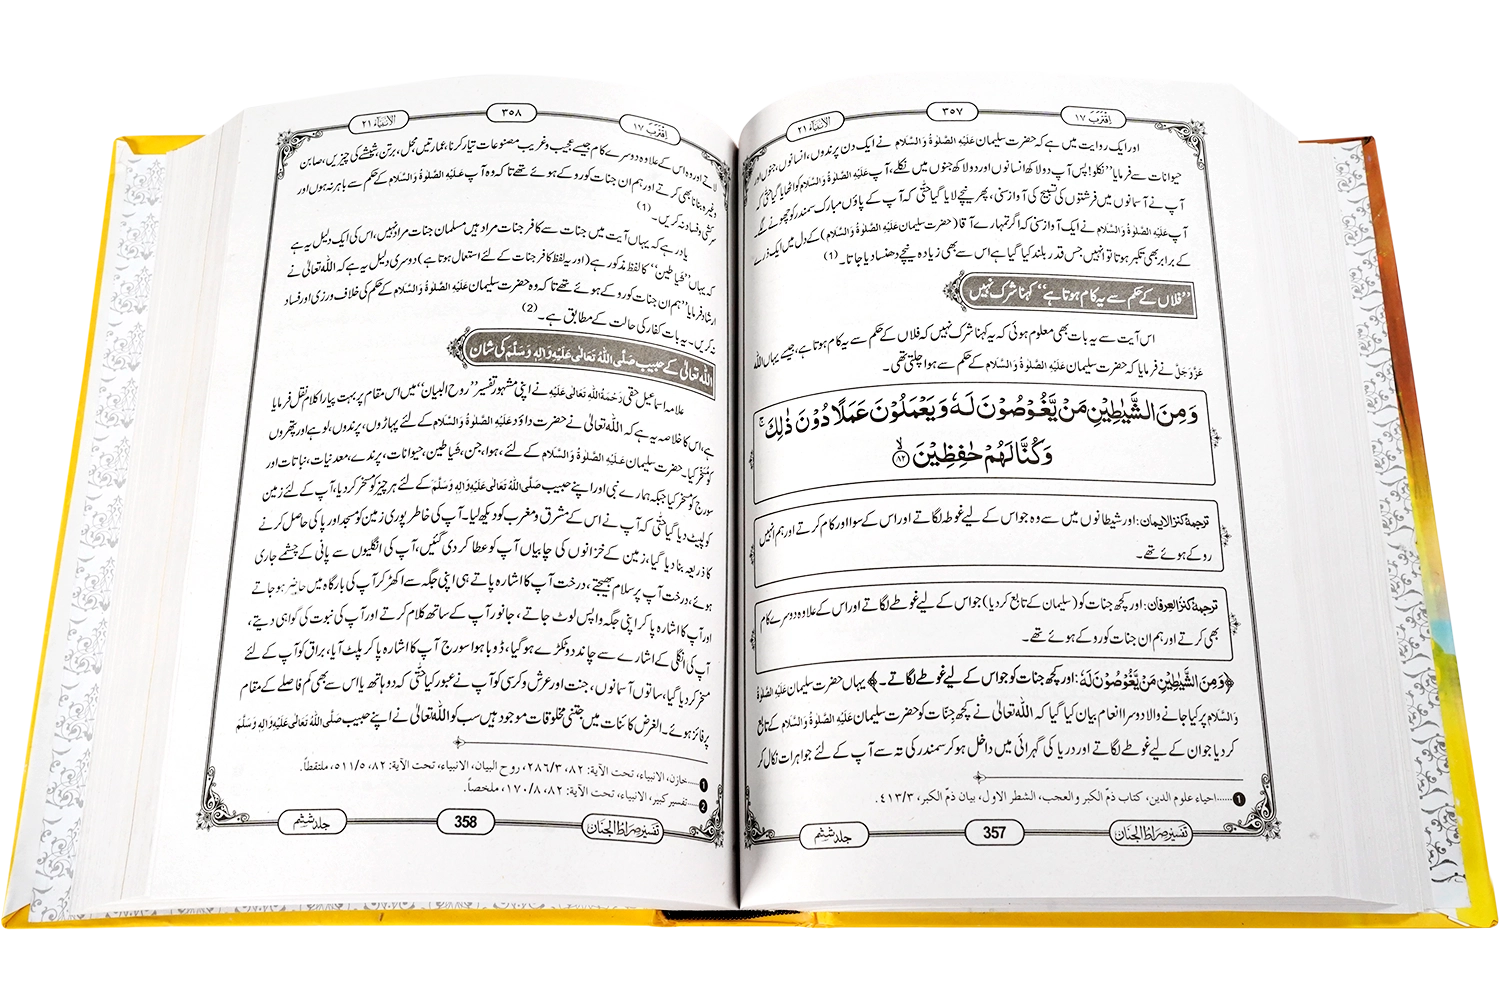 اِقْتَرَبَ ١٧
٣٥٧
الْاَنْۢبِيَآء ٢١
اور ایک روایت میں ہے کہ حضرت سلیمان عَلَیْہِ الصَّلٰوۃُ وَالسَّلَام نے ایک دن پرندوں، انسانوں، جنوں اور
حیوانات سے فرمایا ’’نکلو! پس آپ دو لاکھ انسانوں اور دو لاکھ جنوں میں نکلے، آپ عَلَیْہِ الصَّلٰوۃُ وَالسَّلَام کو اٹھا لیا گیا حتّٰی کہ
آپ نے آسمانوں میں فرشتوں کی تسبیح کی آواز سنی، پھر نیچے لایا گیا حتّٰی کہ آپ کے پاؤں مبارک سمندر کو چھونے لگے۔
آپ عَلَیْہِ الصَّلٰوۃُ وَالسَّلَام نے ایک آواز سنی کہ اگر تمہارے آقا (حضرت سلیمان عَلَیْہِ الصَّلٰوۃُ وَالسَّلَام) کے دل میں ایک ذرے
کے برابر بھی تکبر ہوتا تو انہیں جس قدر بلند کیا گیا ہے اس سے بھی زیادہ نیچے دھنسا دیا جاتا۔ (1)
’’فلاں کے حکم سے یہ کام ہوتا ہے‘‘ کہنا شرک نہیں
اس آیت سے یہ بات بھی معلوم ہوئی کہ یہ کہنا شرک نہیں کہ فلاں کے حکم سے یہ کام ہوتا ہے، جیسے یہاں اللہ
عَزَّوَجَلَّ نے فرمایا کہ حضرت سلیمان عَلَیْہِ الصَّلٰوۃُ وَالسَّلَام کے حکم سے ہوا چلتی تھی۔
وَ مِنَ الشَّیٰطِیْنِ مَنْ یَّغُوْصُوْنَ لَهٗ وَ یَعْمَلُوْنَ عَمَلًا دُوْنَ ذٰلِكَۚ
وَ كُنَّا لَهُمْ حٰفِظِیْنَۙ ﴿٨٢﴾
ترجمۂ کنزالایمان: اور شیطانوں میں سے وہ جو اس کے لیے غوطہ لگاتے اور اس کے سوا اور کام کرتے اور ہم انہیں
روکے ہوئے تھے۔
ترجمۂ کنزُالعِرفان: اور کچھ جنات کو (سلیمان کے تابع کردیا) جو اس کے لیے غوطے لگاتے اور اس کے علاوہ دوسرے کام
بھی کرتے اور ہم ان جنات کو روکے ہوئے تھے۔
﴿وَ مِنَ الشَّیٰطِیْنِ مَنْ یَّغُوْصُوْنَ لَهٗ: اور کچھ جنات کو جو اس کے لیے غوطے لگاتے۔﴾ یہاں حضرت سلیمان عَلَیْہِ الصَّلٰوۃُ
وَالسَّلَام پر کیا جانے والا دوسرا انعام بیان کیا گیا کہ اللہ تعالیٰ نے کچھ جِنّات کو حضرت سلیمان عَلَیْہِ الصَّلٰوۃُ وَالسَّلَام کے تابع
کر دیا جو ان کے لیے غوطے لگاتے اور دریا کی گہرائی میں داخل ہو کر سمندر کی تہ سے آپ کے لئے جواہرات نکال کر
1.....احیاء علوم الدین، کتاب ذمّ الکبر والعجب، الشطر الاول، بیان ذمّ الکبر، ۳/۴۱۳.
تَفْسِیْر صِرَاطُ الْجِنَان
357
جلد ششم
اِقْتَرَبَ ١٧
٣٥٨
الْاَنْۢبِيَآء ٢١
لاتے اور وہ اس کے علاوہ دوسرے کام جیسے عجیب و غریب مصنوعات تیار کرنا، عمارتیں، محل، برتن، شیشے کی چیزیں، صابن
وغیرہ بنانا بھی کرتے اور ہم ان جنات کو روکے ہوئے تھے تاکہ وہ آپ عَلَیْہِ الصَّلٰوۃُ وَالسَّلَام کے حکم سے باہر نہ ہوں اور
سرکشی و فساد نہ کریں۔ (1)
یاد رہے کہ یہاں آیت میں جنات سے کافر جنات مراد ہیں مسلمان جنات مراد نہیں، اس کی ایک دلیل یہ ہے
کہ یہاں ’’شَیاطین‘‘ کا لفظ مذکور ہے (اور یہ لفظ کافر جنات کے لئے استعمال ہوتا ہے) دوسری دلیل یہ ہے کہ اللہ تعالیٰ نے
ارشاد فرمایا ’’ہم ان جنات کو روکے ہوئے تھے تاکہ وہ حضرت سلیمان عَلَیْہِ الصَّلٰوۃُ وَالسَّلَام کے حکم کی خلاف ورزی اور فساد
نہ کریں۔ یہ بات کفار کی حالت کے مطابق ہے۔ (2)
اللہ تعالیٰ کے حبیب صَلَّی اللہُ تَعَالٰی عَلَیْہِ وَاٰلِہٖ وَسَلَّمَ کی شان
علامہ اسماعیل حقی رَحْمَۃُ اللہِ تَعَالٰی عَلَیْہِ نے اپنی مشہور تفسیر ’’روح البیان‘‘ میں اس مقام پر بہت پیارا کلام نقل فرمایا
ہے، اس کا خلاصہ یہ ہے کہ اللہ تعالیٰ نے حضرت داؤد عَلَیْہِ الصَّلٰوۃُ وَالسَّلَام کے لئے پہاڑوں، پرندوں، لوہے اور پتھروں
کو مُسَخَّر کیا۔ حضرت سلیمان عَلَیْہِ الصَّلٰوۃُ وَالسَّلَام کے لئے ہوا، جن، شَیاطین، حیوانات، پرندے، معدنیات، نباتات اور
سورج کو مسخر کیا جبکہ ہمارے نبی اور اپنے حبیب صَلَّی اللہُ تَعَالٰی عَلَیْہِ وَاٰلِہٖ وَسَلَّمَ کے لئے ہر چیز کو مسخر کر دیا، آپ کے لئے زمین
کو لپیٹ دیا گیا حتّٰی کہ آپ نے اس کے مشرق و مغرب کو دیکھ لیا۔ آپ کی خاطر پوری زمین کو مسجد اور پاکی حاصل کرنے
کا ذریعہ بنا دیا گیا، زمین کے خزانوں کی چابیاں آپ کو عطا کر دی گئیں، آپ کی انگلیوں سے پانی کے چشمے جاری
ہوئے، درخت آپ پر سلام بھیجتے، درخت آپ کا اشارہ پاتے ہی اپنی جگہ سے اکھڑ کر آپ کی بارگاہ میں حاضر ہو جاتے
اور آپ کا اشارہ پا کر اپنی جگہ واپس لوٹ جاتے، جانور آپ کے ساتھ کلام کرتے اور آپ کی نبوت کی گواہی دیتے،
آپ کی انگلی کے اشارے سے چاند دو ٹکڑے ہو گیا، ڈوبا ہوا سورج آپ کا اشارہ پا کر پلٹ آیا، براق کو آپ کے لئے
مسخر کر دیا گیا، ساتوں آسمانوں، جنت اور عرش و کرسی کو آپ نے عبور کیا حتّٰی کہ دو ہاتھ یا اس سے بھی کم فاصلے کے مقام
پر فائز ہوئے۔ الغرض کائنات میں جتنی مخلوقات موجود ہیں سب کو اللہ تعالیٰ نے اپنے حبیب صَلَّی اللہُ تَعَالٰی عَلَیْہِ وَاٰلِہٖ وَسَلَّمَ
1.....خازن، الانبیاء، تحت الآیة: ۸۲، ۳/۲۸۶، روح البیان، الانبیاء، تحت الآیة: ۸۲، ۵/۵۱۱، ملتقطاً.
2.....تفسیر کبیر، الانبیاء، تحت الآیة: ۸۲، ۸/۱۷۰، ملخصاً.
تَفْسِیْر صِرَاطُ الْجِنَان
358
جلد ششم